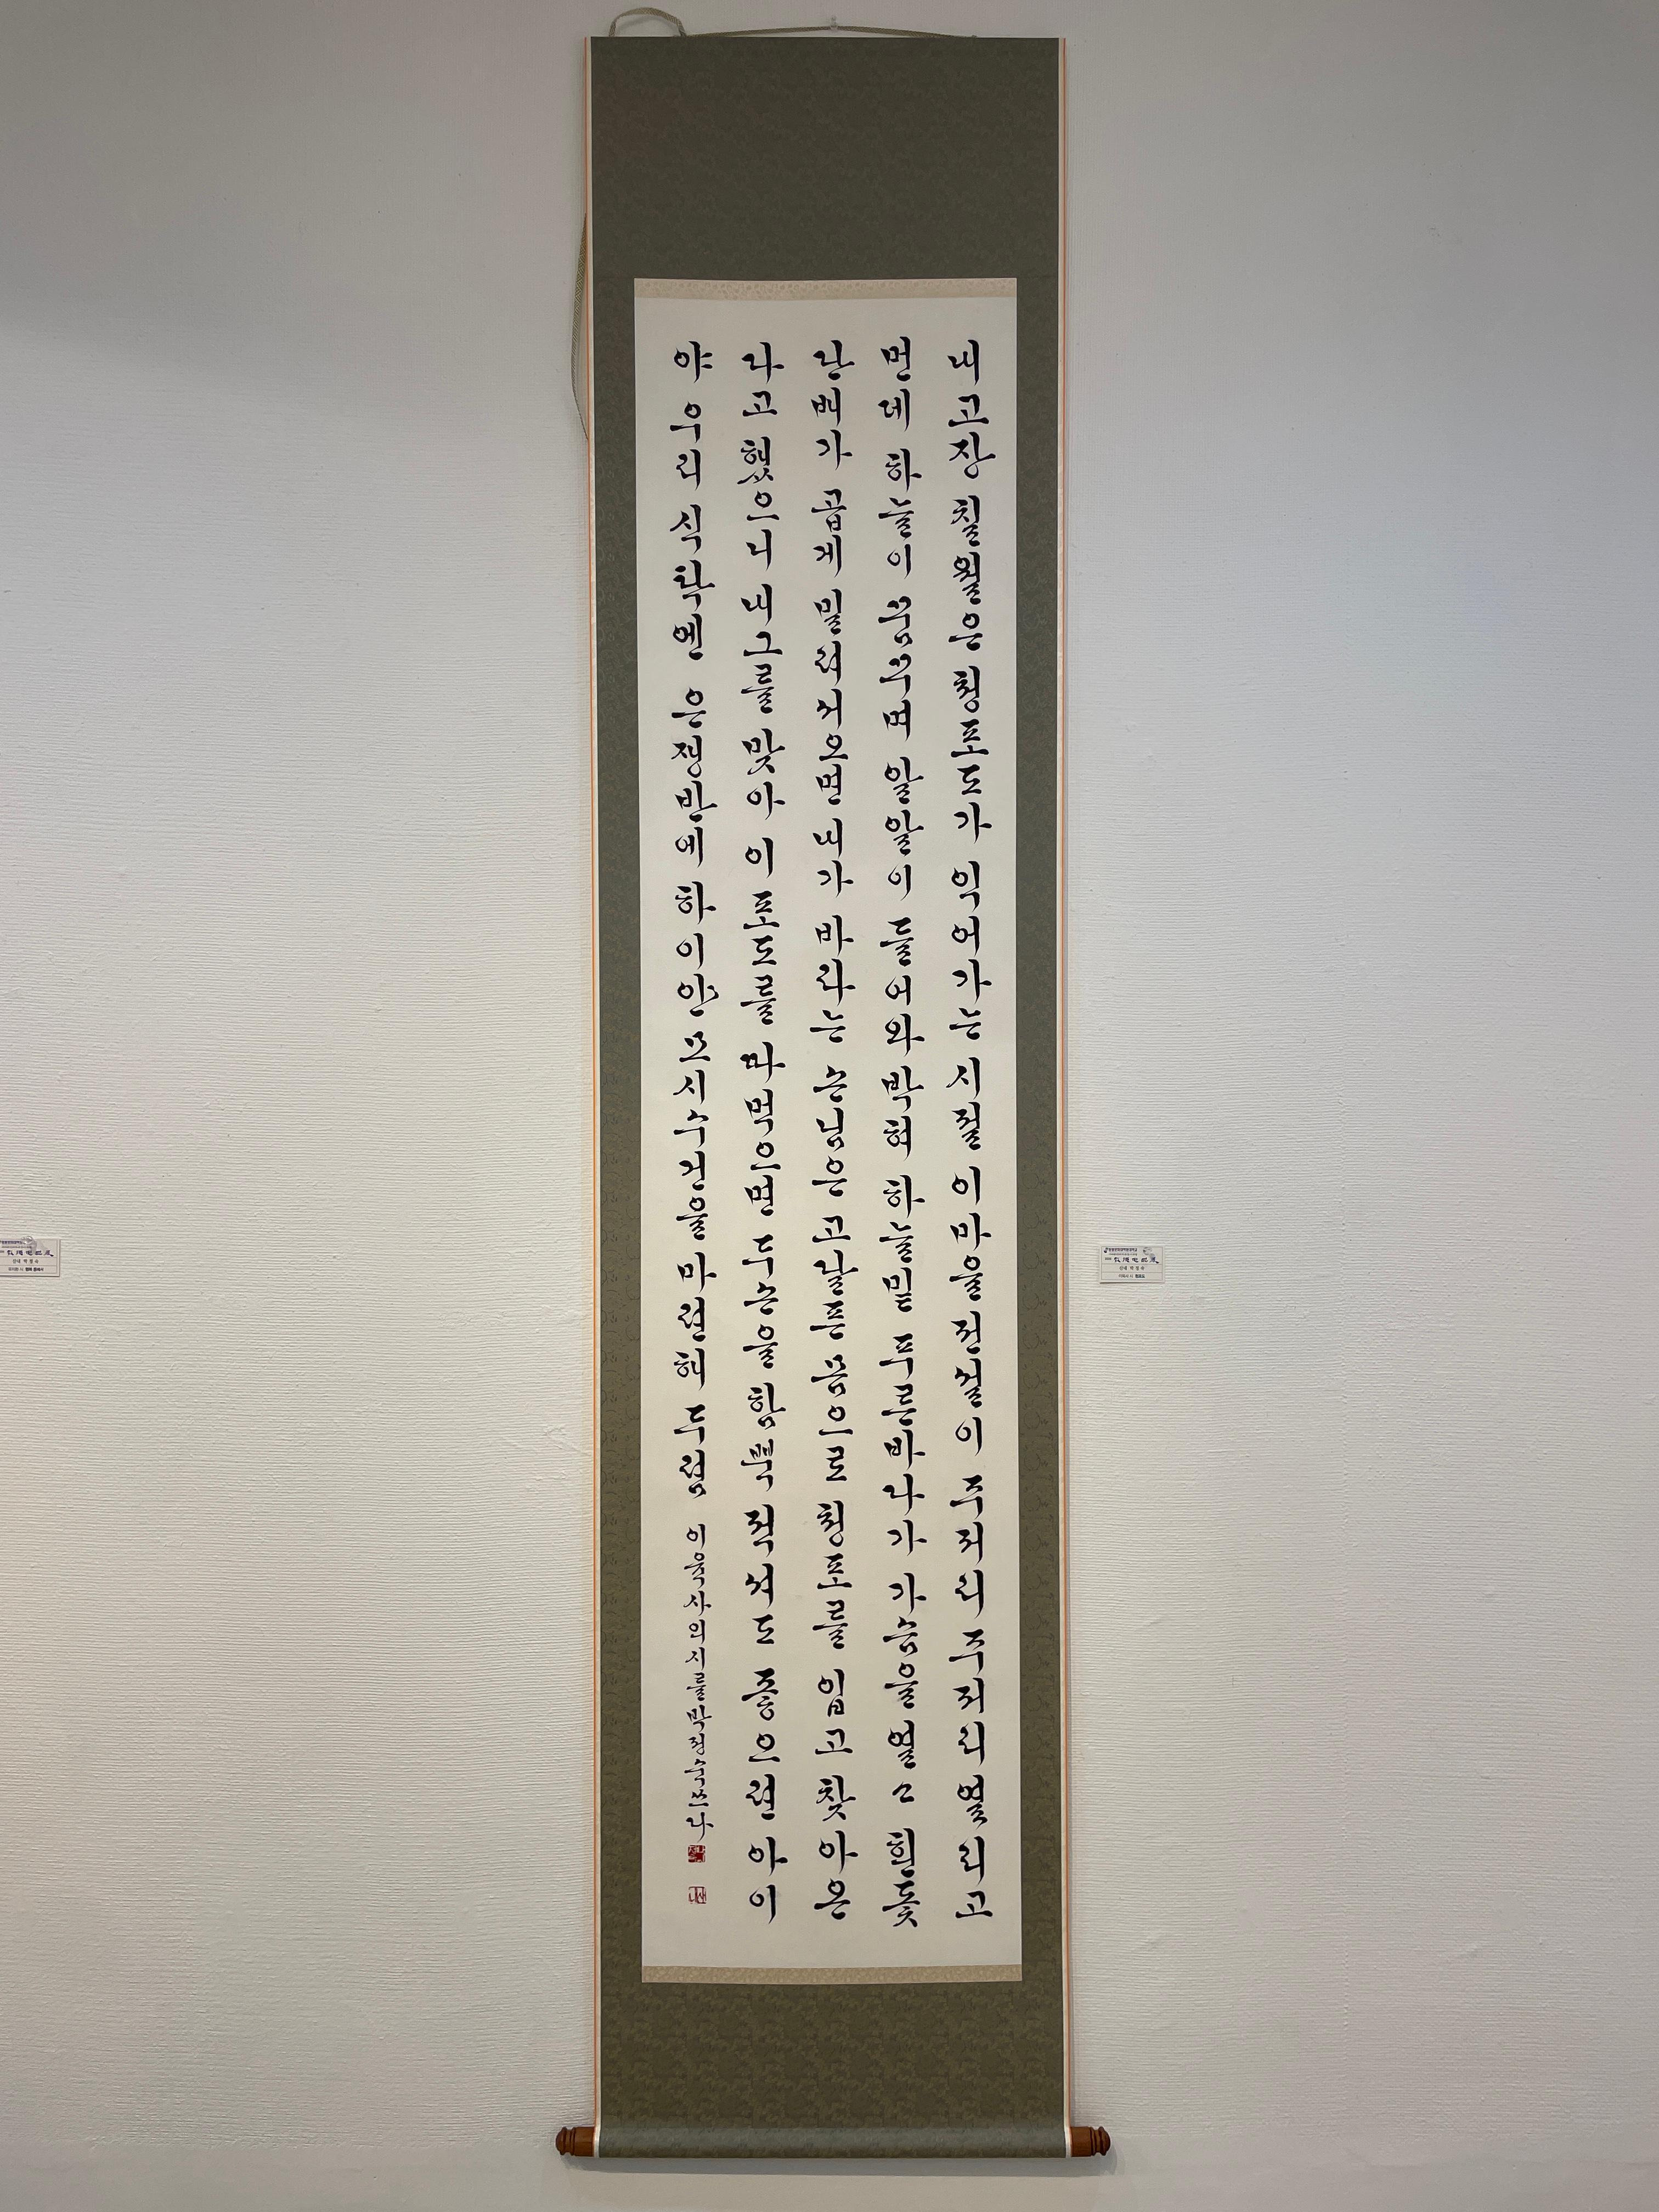 내 고장 칠월은 청포도가 익어가는 시절 이 마을 전설이 주저리 주저리 열리고
먼 데 하늘이 꿈꾸며 알알이 들어와 박혀 하늘 밑 푸른 바다가 가슴을 열고 흰 돛
단 배가 곱게 밀려서 오면 내가 바라는 손님은 고달픈 몸으로 청포를 입고 찾아온
다고 했으니 내 그를 맞아 이 포도를 따 먹으면 두 손을 함뿍 적셔도 좋으련 아이
야 우리 식탁엔 은쟁반에 하이얀 모시 수건을 마련해 두렴 이육사의 시를 박정숙 쓰다
박 정 숙
이육사 시 청포도